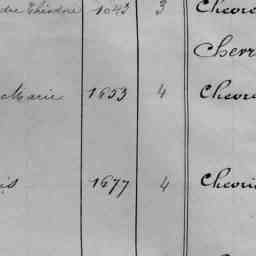 dre Théodore 1043 3 Chevre
Cherr
Marie 1653 4 Chevre
is 1677 4 Chevri